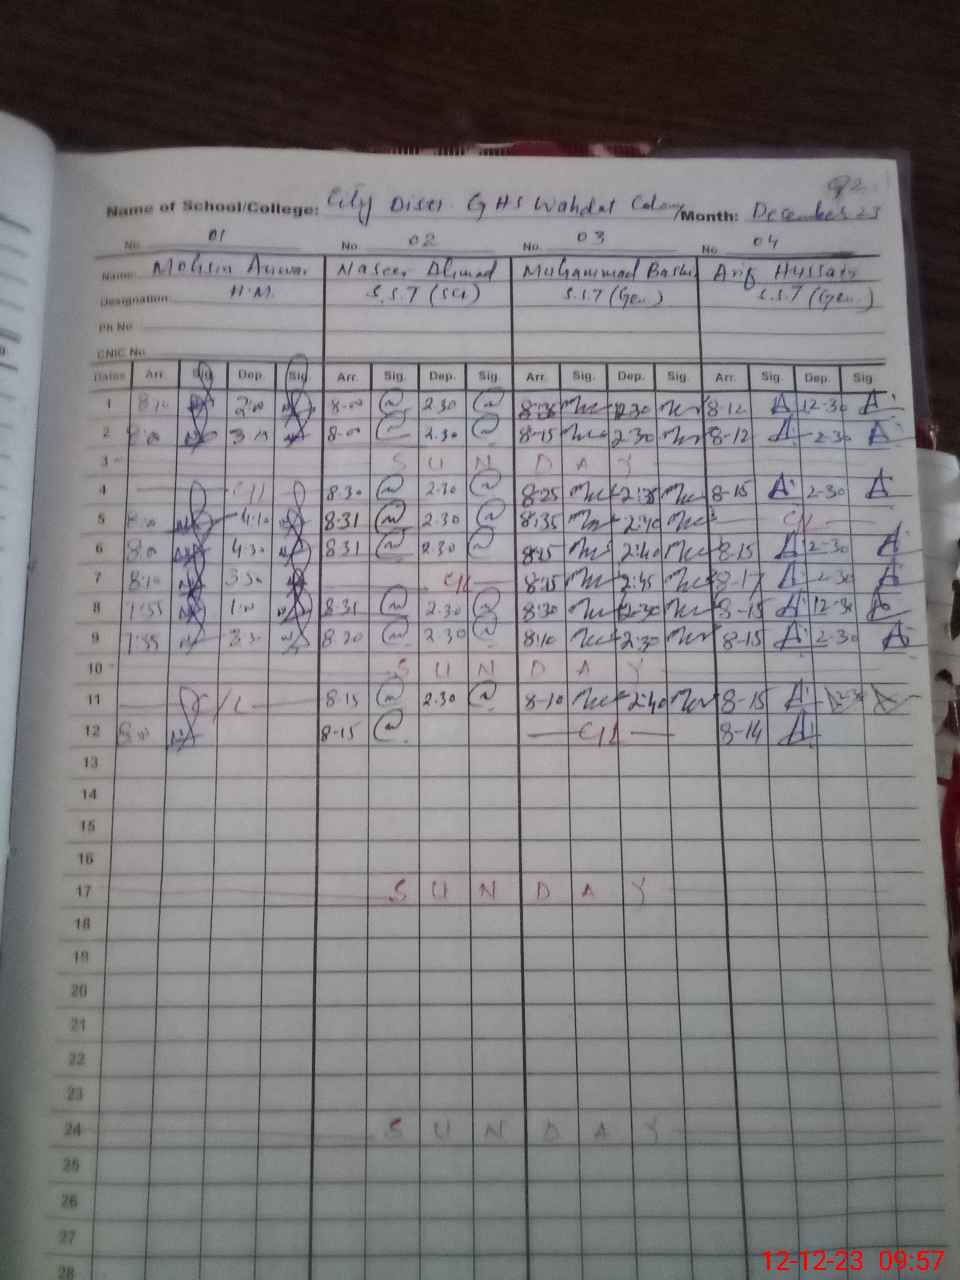 92
Name of School/College: City Distt. GHS Wahdat Colony Month: December 23
No. 01 No. 02 No. 03 No. 04
Name: Mohsin Anwar Naseer Ahmad Muhammad Bashir Arif Hussain
Designation H.M. S.S.T (Sci) S.S.T (Gen.) S.S.T (Gen.)
Ph No
CNIC No.
Dates Arr. Sig. Dep. Sig. Arr. Sig. Dep. Sig. Arr. Sig. Dep. Sig. Arr. Sig. Dep. Sig.
1 8:10 2:00 8-00 2.30 12:30 8-12 12-30
2 8:00 8-00 2.30 8-15 2:30 8-12 2-30
3 S U N D A Y
4 C/L 8.30 2.30 8:25 2:35 8-15 2-30
5 8:00 4:10 8.31 2.30 8:35 2:40 C/L
6 8:00 4:30 8.31 2.30 8:15 2:40 8-15 2-30
7 8:10 3:30 C/L 8:15 2:45 8-17 2-30
8 7:55 1:00 8.31 2.30 8:30 12:30 8-15 12-30
9 7:55 3:30 8.20 2.30 8:10 2:30 8-15 2-30
10 S U N D A Y
11 C/L 8.15 2.30 8-10 2:40 8-15
12 8:00 8-15 C/L 8-14
13
14
15
16
17 S U N D A Y
18
19
20
21
22
23
24 S U N D A Y
25
26
27
28
12-12-23 09:57